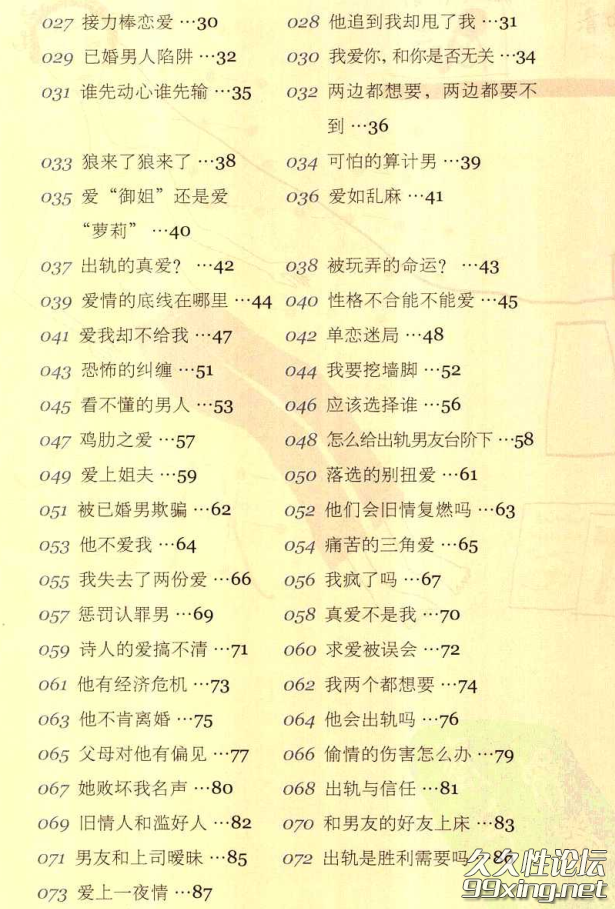 027 接力棒恋爱 …30 028 他追到我却甩了我 …31
029 已婚男人陷阱 …32 030 我爱你，和你是否无关 …34
031 谁先动心谁先输 …35 032 两边都想要，两边都要不
到 …36
033 狼来了狼来了 …38 034 可怕的算计男 …39
035 爱“御姐”还是爱 036 爱如乱麻 …41
“萝莉” …40
037 出轨的真爱？ …42 038 被玩弄的命运？ …43
039 爱情的底线在哪里 …44 040 性格不合能不能爱 …45
041 爱我却不给我 …47 042 单恋迷局 …48
043 恐怖的纠缠 …51 044 我要挖墙脚 …52
045 看不懂的男人 …53 046 应该选择谁 …56
047 鸡肋之爱 …57 048 怎么给出轨男友台阶下 …58
049 爱上姐夫 …59 050 落选的别扭爱 …61
051 被已婚男欺骗 …62 052 他们会旧情复燃吗 …63
053 他不爱我 …64 054 痛苦的三角爱 …65
055 我失去了两份爱 …66 056 我疯了吗 …67
057 惩罚认罪男 …69 058 真爱不是我 …70
059 诗人的爱搞不清 …71 060 求爱被误会 …72
061 他有经济危机 …73 062 我两个都想要 …74
063 他不肯离婚 …75 064 他会出轨吗 …76
065 父母对他有偏见 …77 066 偷情的伤害怎么办 …79
067 她败坏我名声 …80 068 出轨与信任 …81
069 旧情人和滥好人 …82 070 和男友的好友上床 …83
071 男友和上司暧昧 …85 072 出轨是胜利需要吗 …86
073 爱上一夜情 …87
久久性论坛
99xing.net